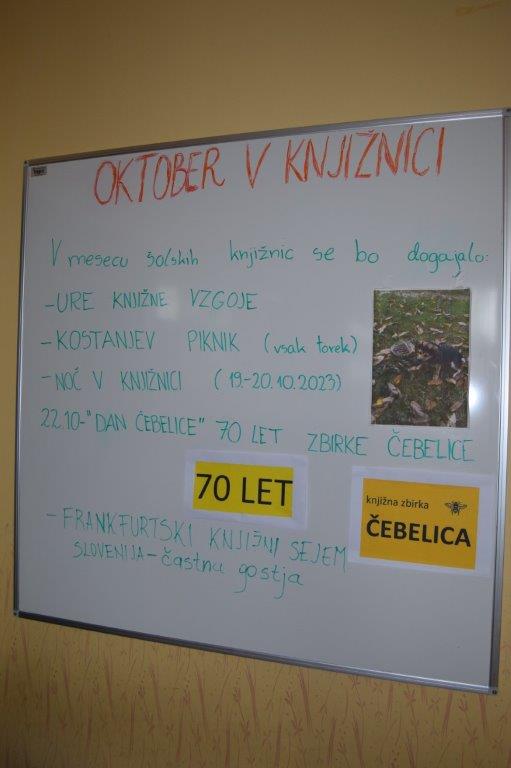 OKTOBER V KNJIŽNICI
V mesecu šolskih knjižnic se bo dogajalo:
-URE KNJIŽNE VZGOJE
-KOSTANJEV PIKNIK (vsak torek)
-NOČ V KNJIŽNICI (19.-20.10.2023)
22.10-"DAN ČEBELICE" 70 LET ZBIRKE ČEBELICE
70 LET
knjižna zbirka
ČEBELICA
-FRANKFURTSKI KNJIŽNI SEJEM
SLOVENIJA-častna gostja